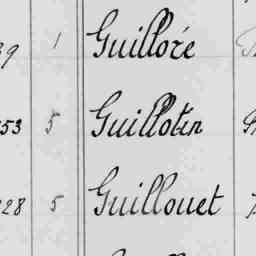 39 1 Guilloré
353 5 Guillotin
228 5 Guillouet